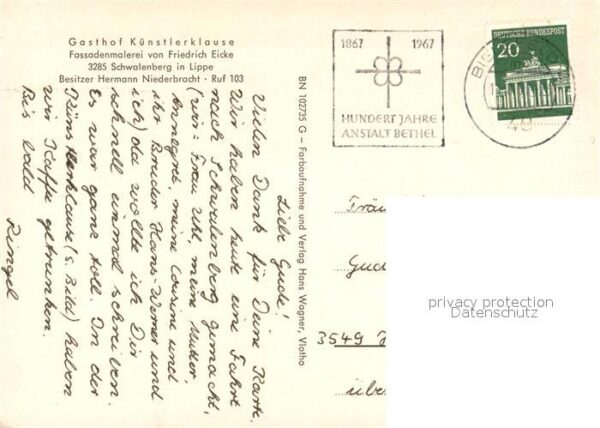 Gasthof Künstlerklause
Fassadenmalerei von Friedrich Eicke
3285 Schwalenberg in Lippe
Besitzer Hermann Niederbracht · Ruf 103
BN 102735 G – Farbaufnahme und Verlag Hans Wagner, Vlotho
1867 1967
HUNDERT JAHRE
ANSTALT BETHEL
DEUTSCHE BUNDESPOST
20
48
Liebe Gude!
Vielen Dank für Deine Karte.
Wir haben heute eine Fahrt
nach Schwalenberg gemacht,
(wir: Frau Uhl, meine Mutter,
Annegret, meine Cousine und
ihr Bruder Hans-Werner und
ich) da wollte ich Dir
schnell einmal schreiben.
Es war ganz toll. In der
Künstlerklause (s. Bild) haben
wir Kaffee getrunken.
Bis bald
Ringel
Fräu
Gud
3549
übe
privacy protection
Datenschutz